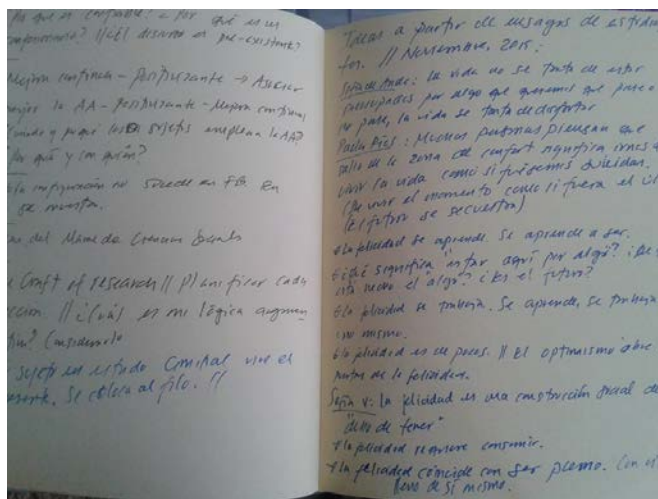 es confiable? ¿Por qué es un
? // ¿El discurso es pre-existente?
Mejora continua - Posibilitante → Asociar
la AA - posibilitante - Mejora continua
y por qué los sujetos emplean la AA?
¿Por qué y con quién?
La configuración no sucede en FB. En
se muestra.
del de Ciencias Sociales
Craft of research // Planificar cada
// ¿Cuál es mi lógica argumen
Considerarlo
sujeto en estado liminal vive el
Se coloca al filo. //
Ideas a partir de ensayos de estudian
tes. // Noviembre, 2015:
: La vida no se trata de estar
preocupados por algo que queremos que pase o
no pase, la vida se trata de disfrutar
Paola : Muchas personas piensan que
salir de la zona de confort significa irnos a
vivir la vida como si fuésemos suicidas.
( vivir el momento como si fuera el úl
(El futuro se secuestra)
La felicidad se aprende. Se aprende a ser.
¿Qué significa "estar aquí por algo"? ¿De
está hecho el algo? ¿Es el futuro?
La felicidad se trabaja. Se aprende, se trabaja
uno mismo.
La felicidad es de pocos. // El optimismo abre
puertas de la felicidad.
Según V: La felicidad es una construcción social de
"debo de tener"
La felicidad requiere consumir.
La felicidad coincide con ser pleno. Con el
lleno de sí mismo.